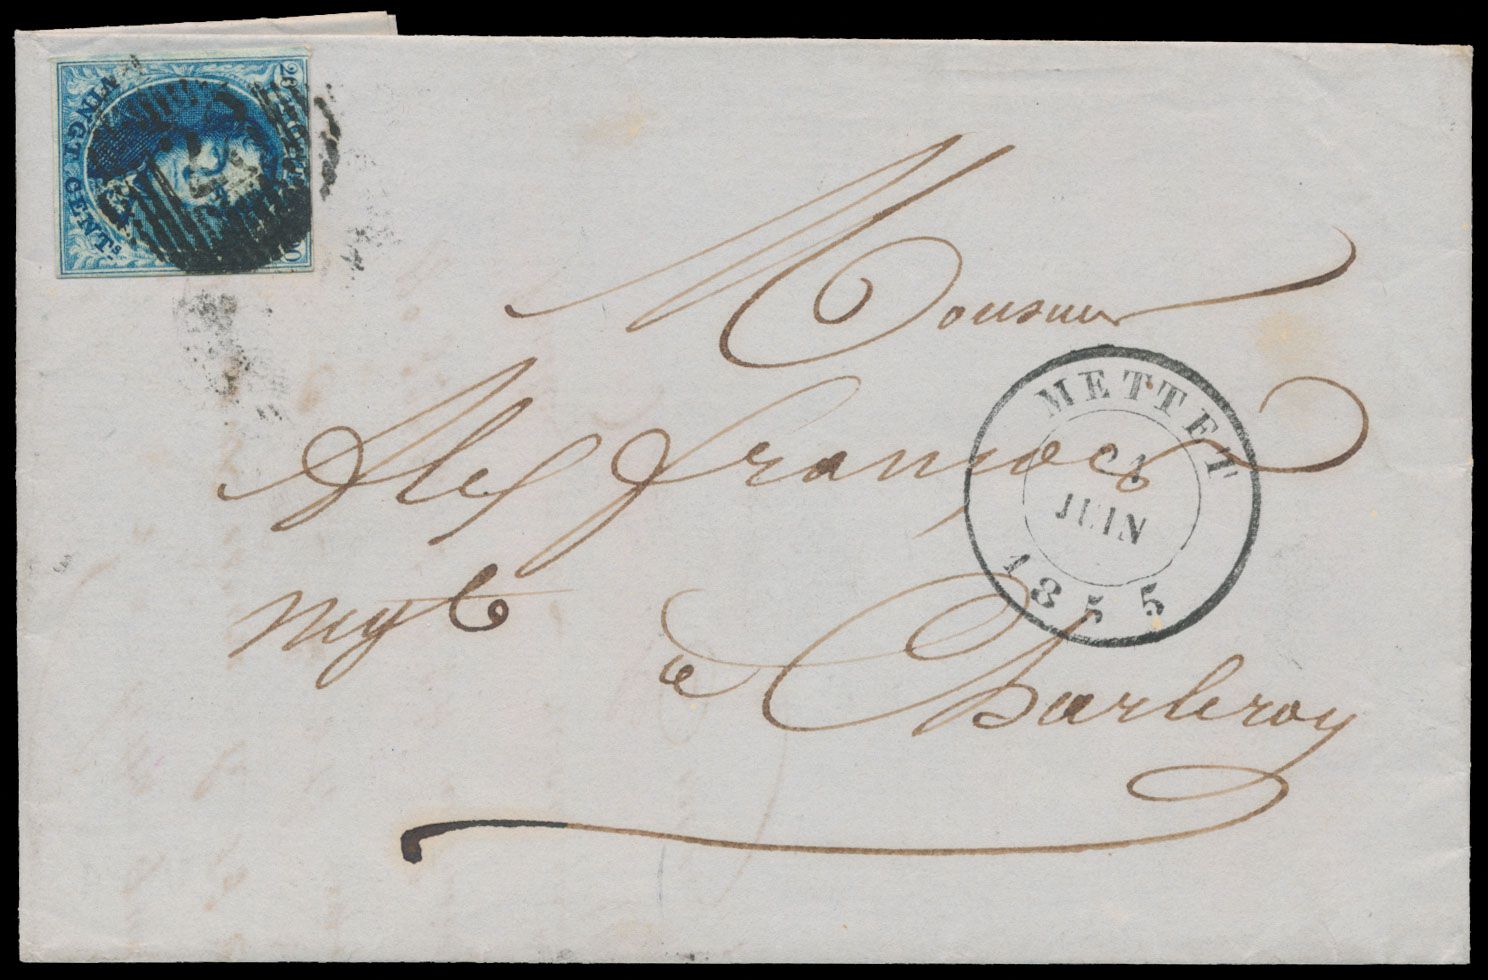 VINGT CENTS.
20
20
Monsieur
Alex françois
ngt
à Charleroy
METTET
JUIN
1855